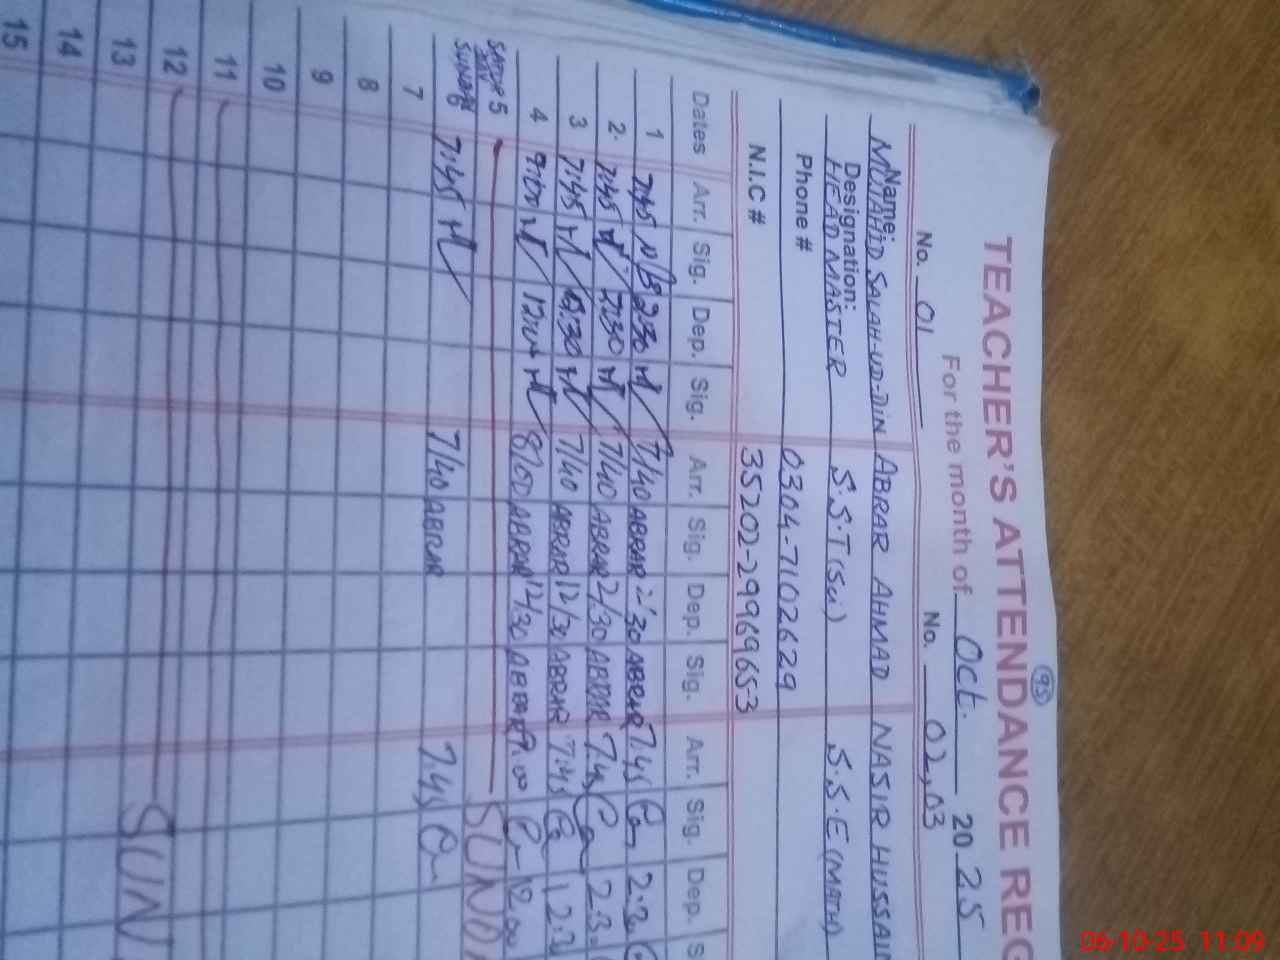 95
TEACHER'S ATTENDANCE REG
For the month of Oct. 20 25
No. 01 No. 02,03
Name: MUJAHID SALAH-UD-DIN ABRAR AHMAD NASIR HUSSAIN
Designation: HEAD MASTER S.S.T (Sci) S.S.E (MATH)
Phone # 0304-7102629
N.I.C # 35202-2996965-3
Dates Arr. Sig. Dep. Sig. Arr. Sig. Dep. Sig. Arr. Sig. Dep. S
1 7:45 2:30 7/40 ABRAR 2:30 ABRAR 7.45
2 7:45 2:30 7/40 ABRAR 2/30 ABRAR 7.45
3 7:45 12:30 7/40 ABRAR 12/30 ABRAR 7.45
4 9:00 8/00 ABRAR 12/30 ABRAR 12.00
5 SUND
6 7:45 7/40 ABRAR 7.45
7
8
9
10
11
12 SUN
13
14
15
06-10-25 11:09